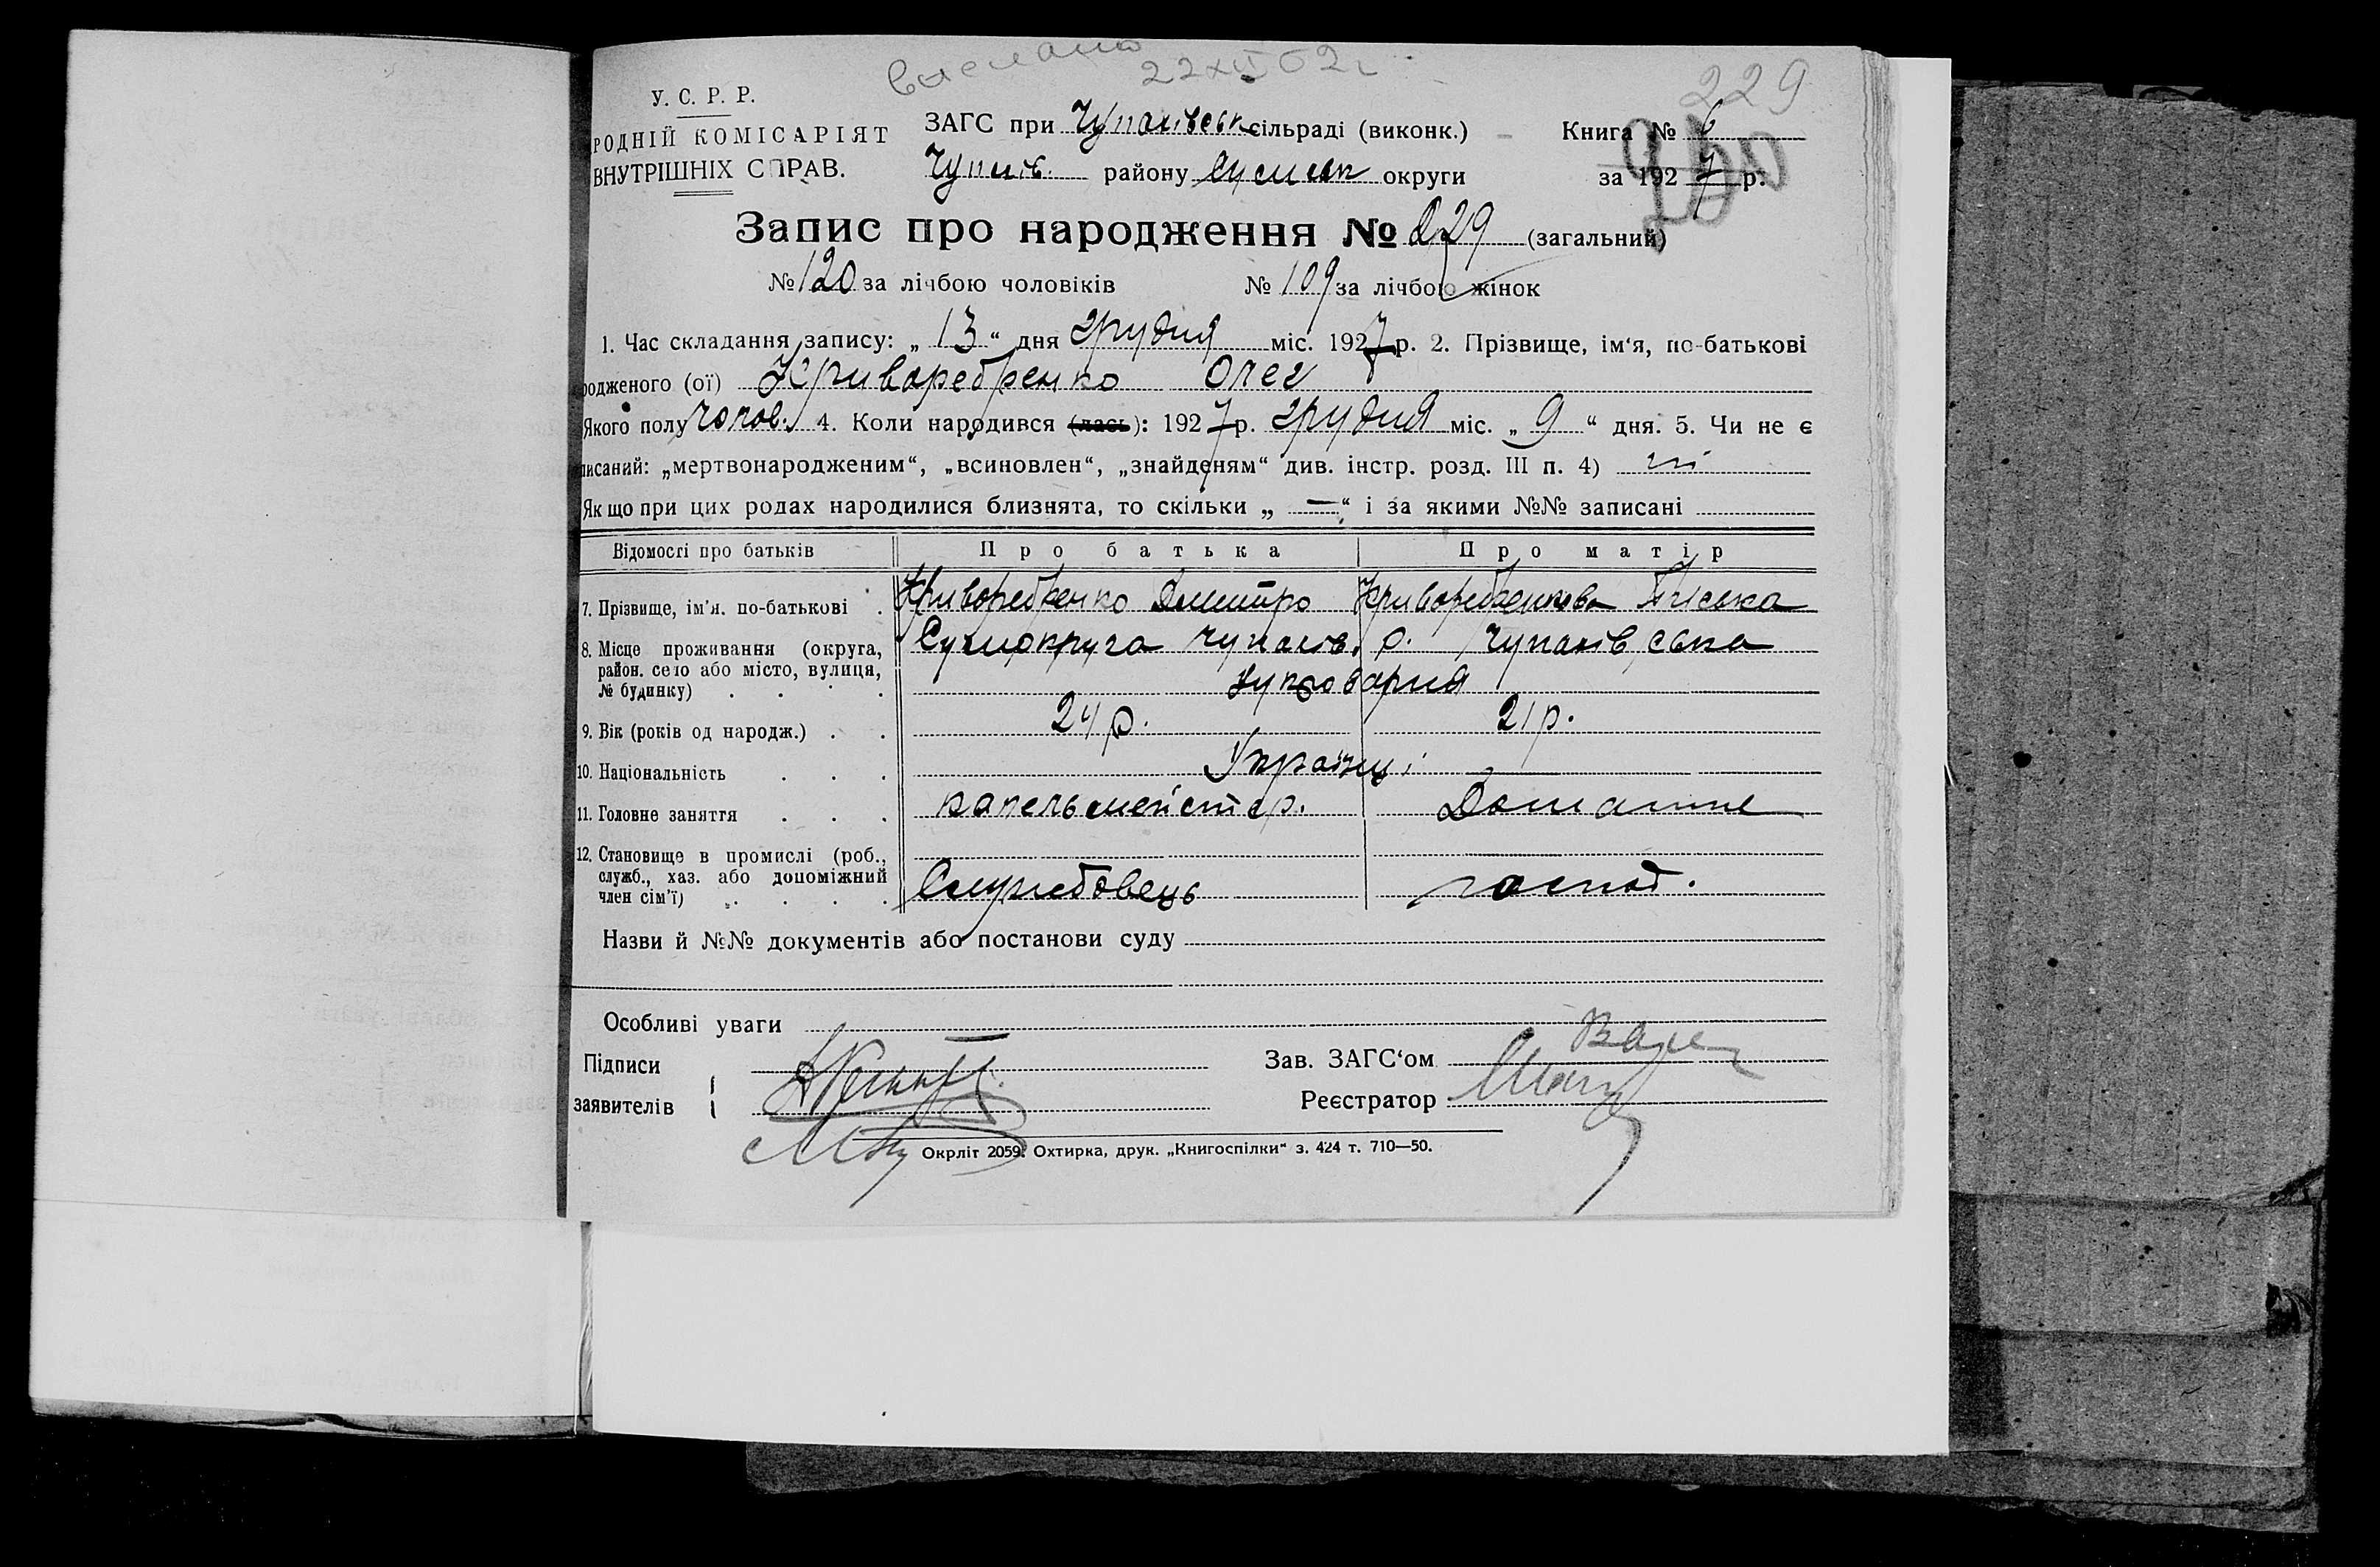 выслано 22 XII 62 г
229
У. С. Р. Р.
РОДНІЙ КОМІСАРІЯТ
ВНУТРІШНІХ СПРАВ.
ЗАГС при Чупахівськ сільраді (виконк.) Книга № 6
Чупахів. району Сумськ округи за 1927 р.
Запис про народження № 229 (загальний)
№ 120 за лічбою чоловіків № 109 за лічбою жінок
1. Час складання запису: „ 13 “ дня грудня міс. 1927 р. 2. Прізвище, ім‘я, по-батькові
родженого (ої) Криворебренко Олег
Якого полу чолов. 4. Коли народився (лась): 1927 р. грудня міс. „ 9 “ дня. 5. Чи не є
писаний: „мертвонародженим“, „всиновлен“, „знайденям“ див. інстр. розд. III п. 4) ні
Якщо при цих родах народилися близнята, то скільки „ — “ і за якими №№ записані
Відомості про батьків Про батька Про матір
7. Прізвище, ім‘я. по-батькові Криворебренко Дмитро Криворебренкова
8. Місце проживання (округа, район. село або місто, вулиця, № будинку) Сумокруга Чупахів. р. Чупахівська
Цукроварня
9. Вік (років од народж.) 24 р. 21 р.
10. Національність Українці
11. Головне заняття капельмейстер. Домашнє
12. Становище в промислі (роб., служб., хаз. або допоміжний член сім‘ї) Службовець господ.
Назви й №№ документів або постанови суду
Особливі уваги
Підписи
заявителів
Зав. ЗАГС‘ом
Реєстратор
Окрліт 2059. Охтирка, друк. „Книгоспілки“ з. 424 т. 710—50.